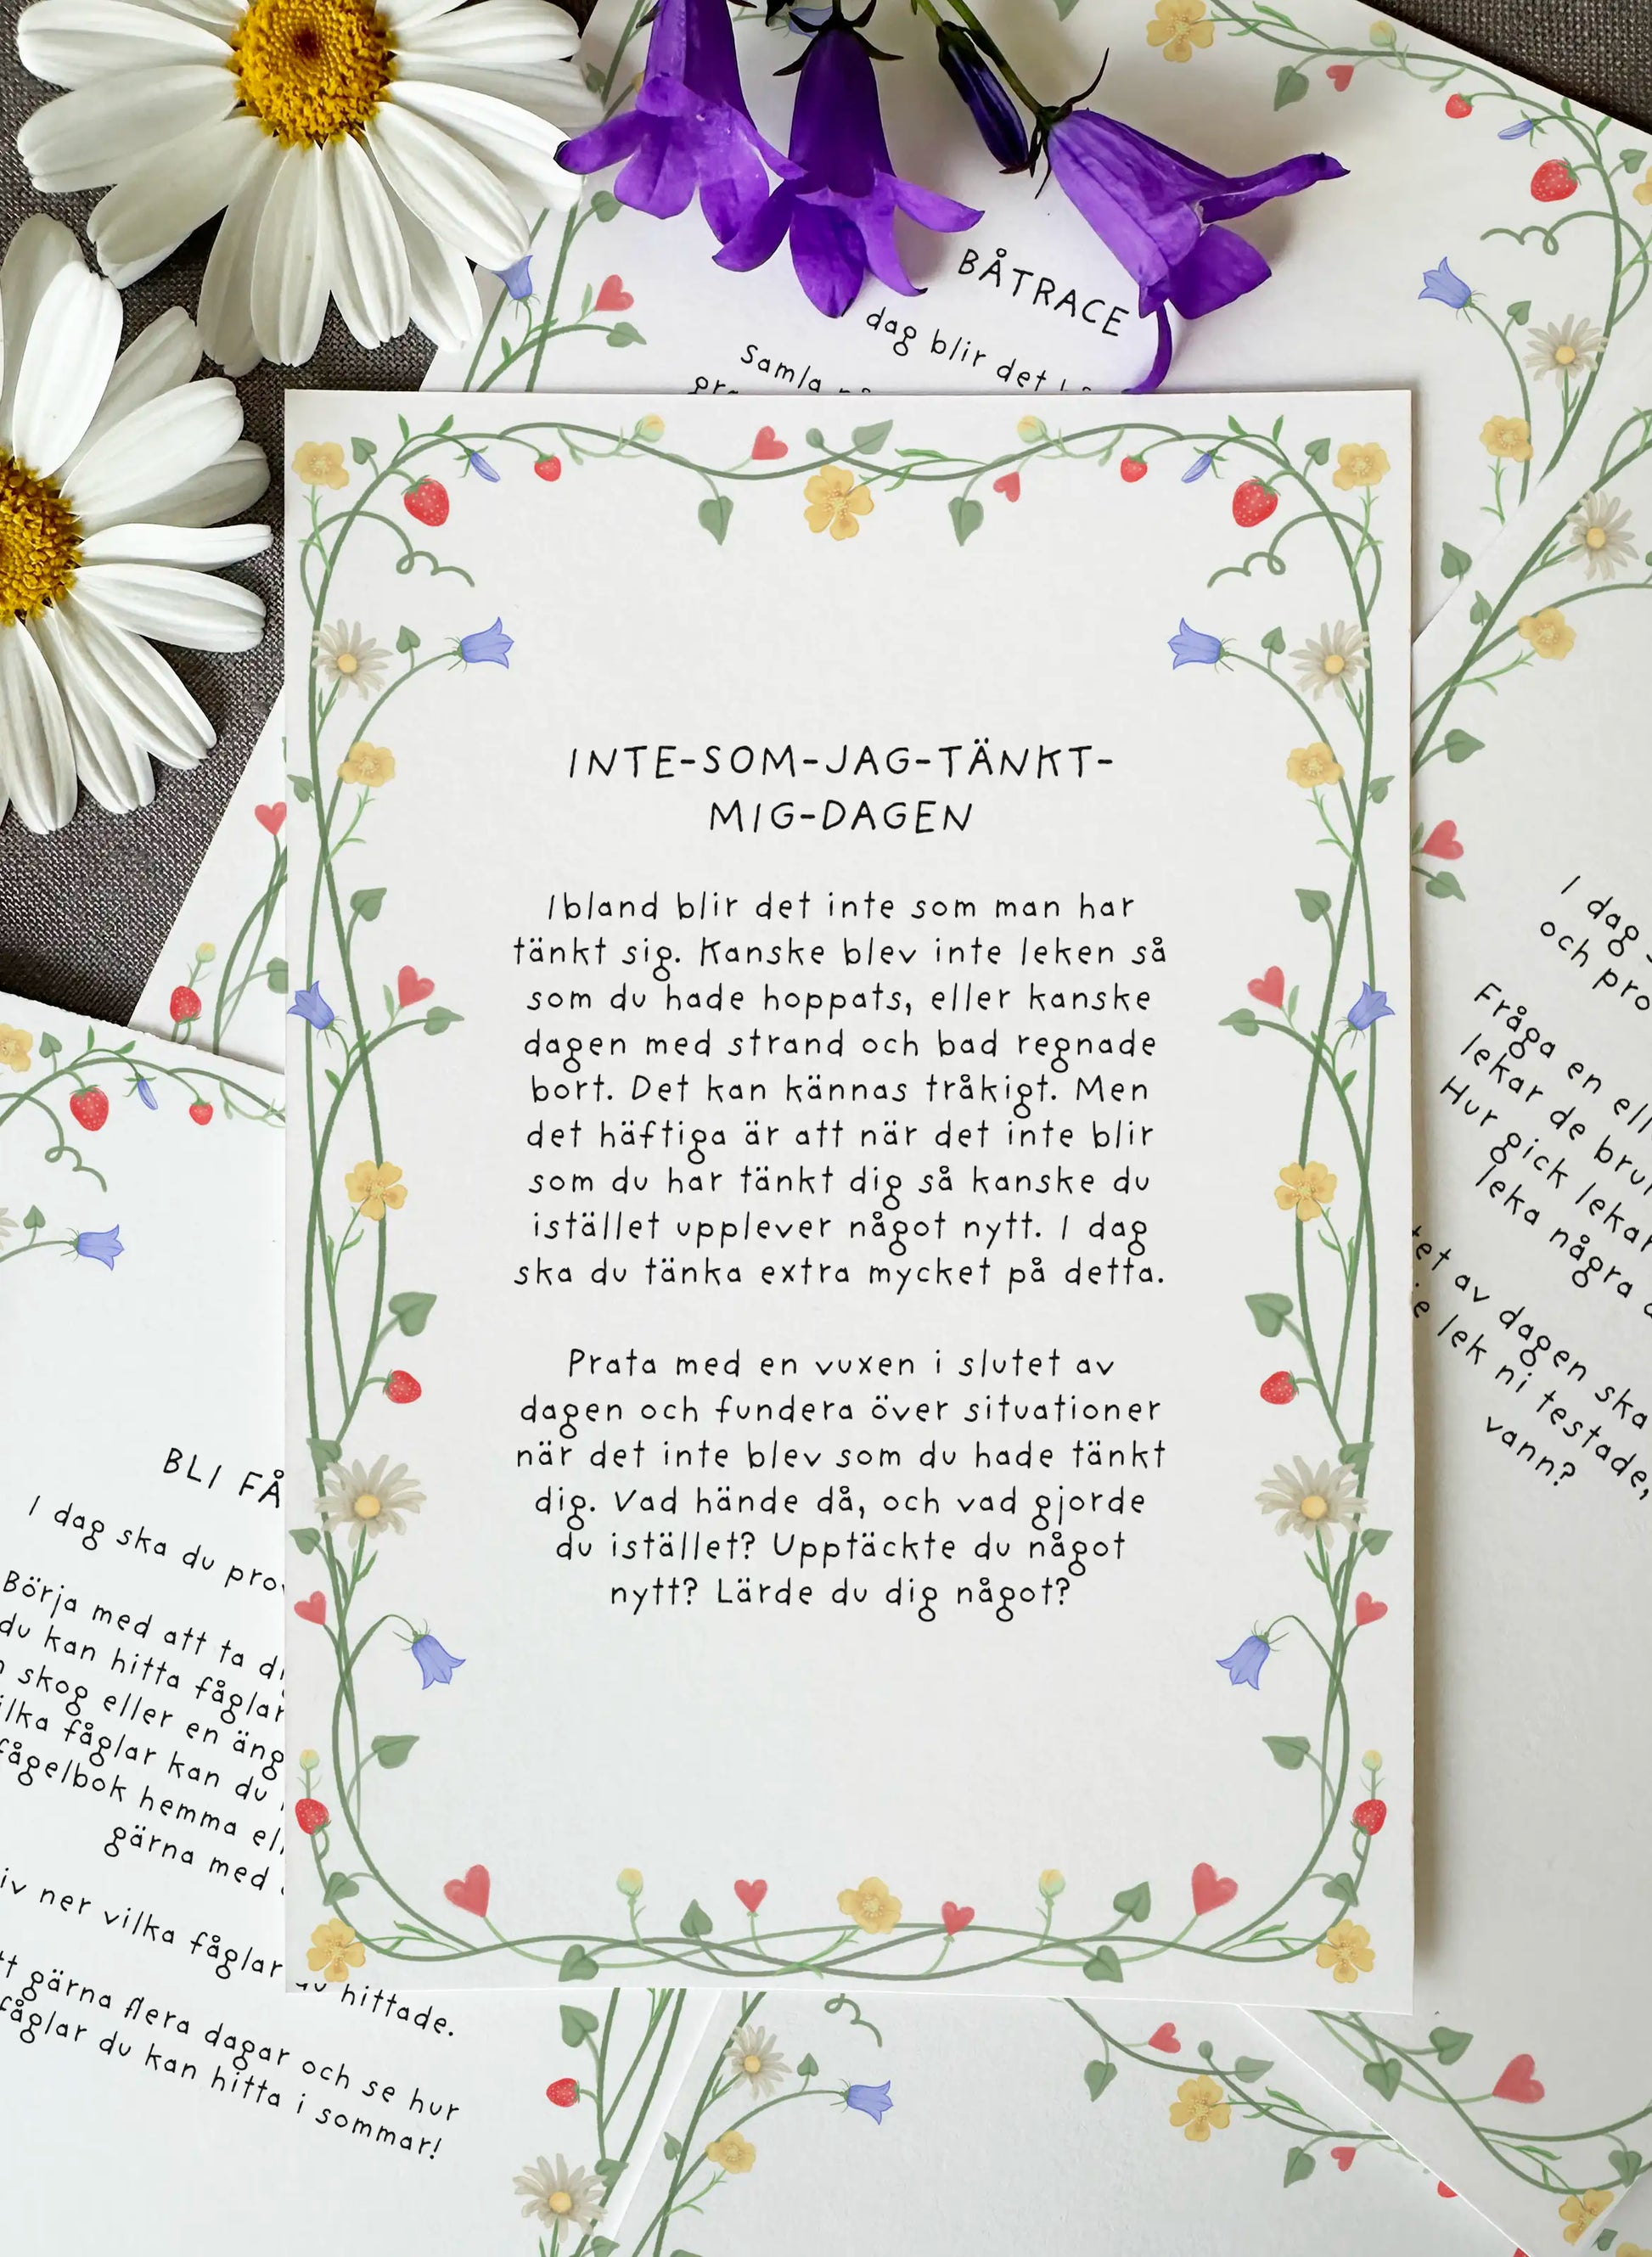 BÅTRACE
dag blir det
Samla
INTE-SOM-JAG-TÄNKT-
MIG-DAGEN
Ibland blir det inte som man har
tänkt sig. Kanske blev inte leken så
som du hade hoppats, eller kanske
dagen med strand och bad regnade
bort. Det kan kännas tråkigt. Men
det häftiga är att när det inte blir
som du har tänkt dig så kanske du
istället upplever något nytt. I dag
ska du tänka extra mycket på detta.
Prata med en vuxen i slutet av
dagen och fundera över situationer
när det inte blev som du hade tänkt
dig. Vad hände då, och vad gjorde
du istället? Upptäckte du något
nytt? Lärde du dig något?
I dag
och pro
Fråga en ell
lekar de bru
Hur gick lekar
leka några
av dagen ska
lek ni testade,
vann?
BLI FÅ
I dag ska du pro
Börja med att ta di
du kan hitta fåglar
skog eller en äng
ilka fåglar kan du
fågelbok hemma el
gärna med
iv ner vilka fåglar du hittade.
gärna flera dagar och se hur
fåglar du kan hitta i sommar!